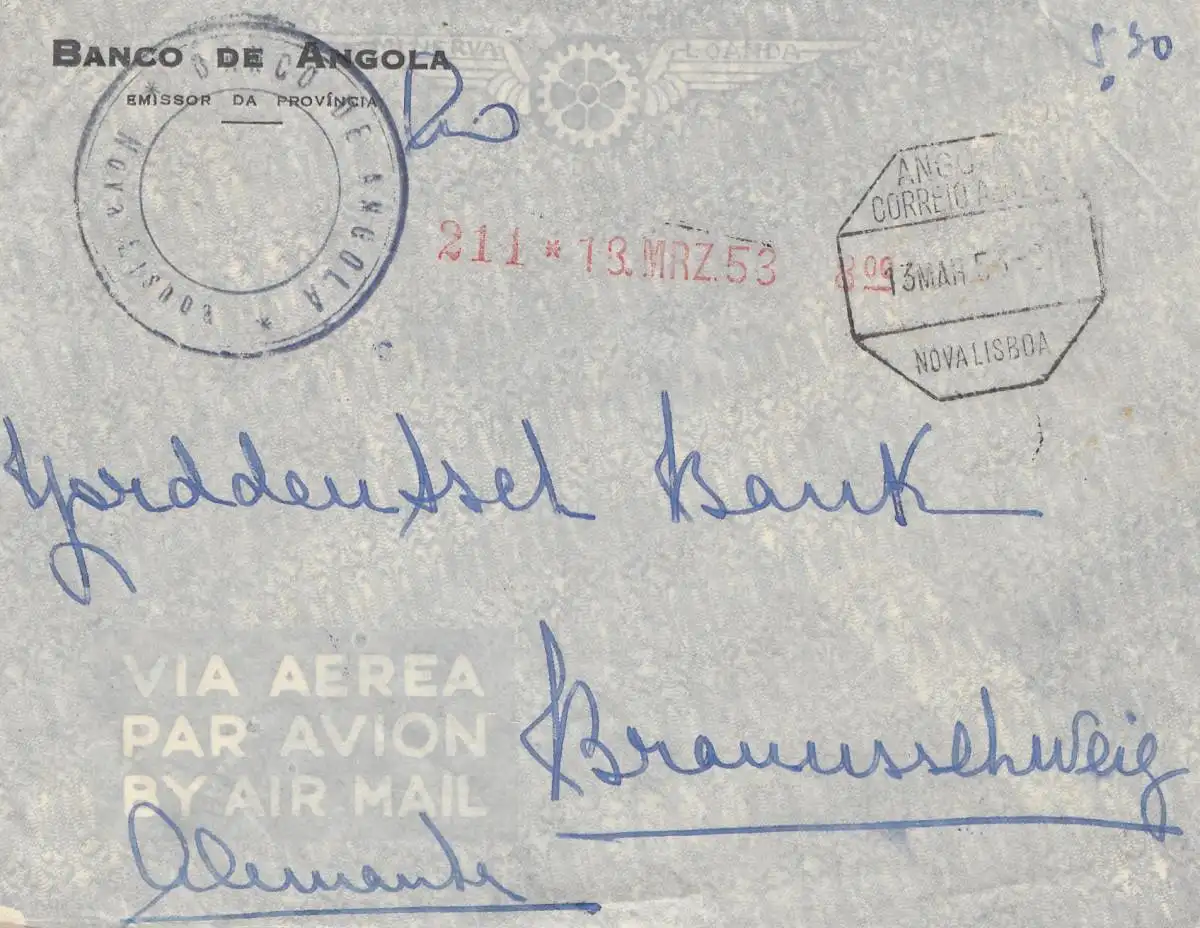 BANCO DE ANGOLA
EMISSOR DA PROVÍNCIA
MINERVA
LOANDA
5.30
Rio
* BANCO DE ANGOLA *
NOVA LISBOA
211 * 13.MRZ.53 8 00
CORREIO
13 MAR 53
NOVA LISBOA
Norddeutsch Bank
VIA AEREA
PAR AVION
BY AIR MAIL
Braunsschweig